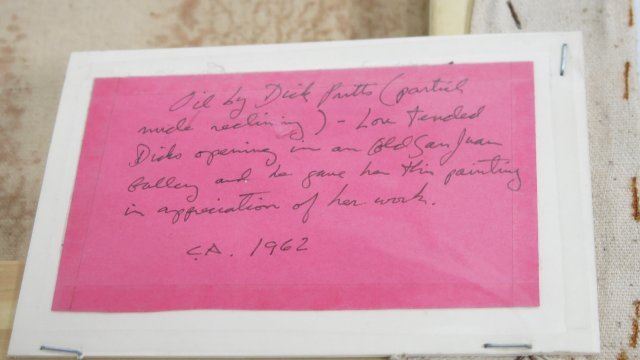 Oil by Dick Pritts (partial
nude reclining) - Lou tended
Dicks opening in an Old San Juan
Gallery and he gave her this painting
in appreciation of her work.
CA. 1962